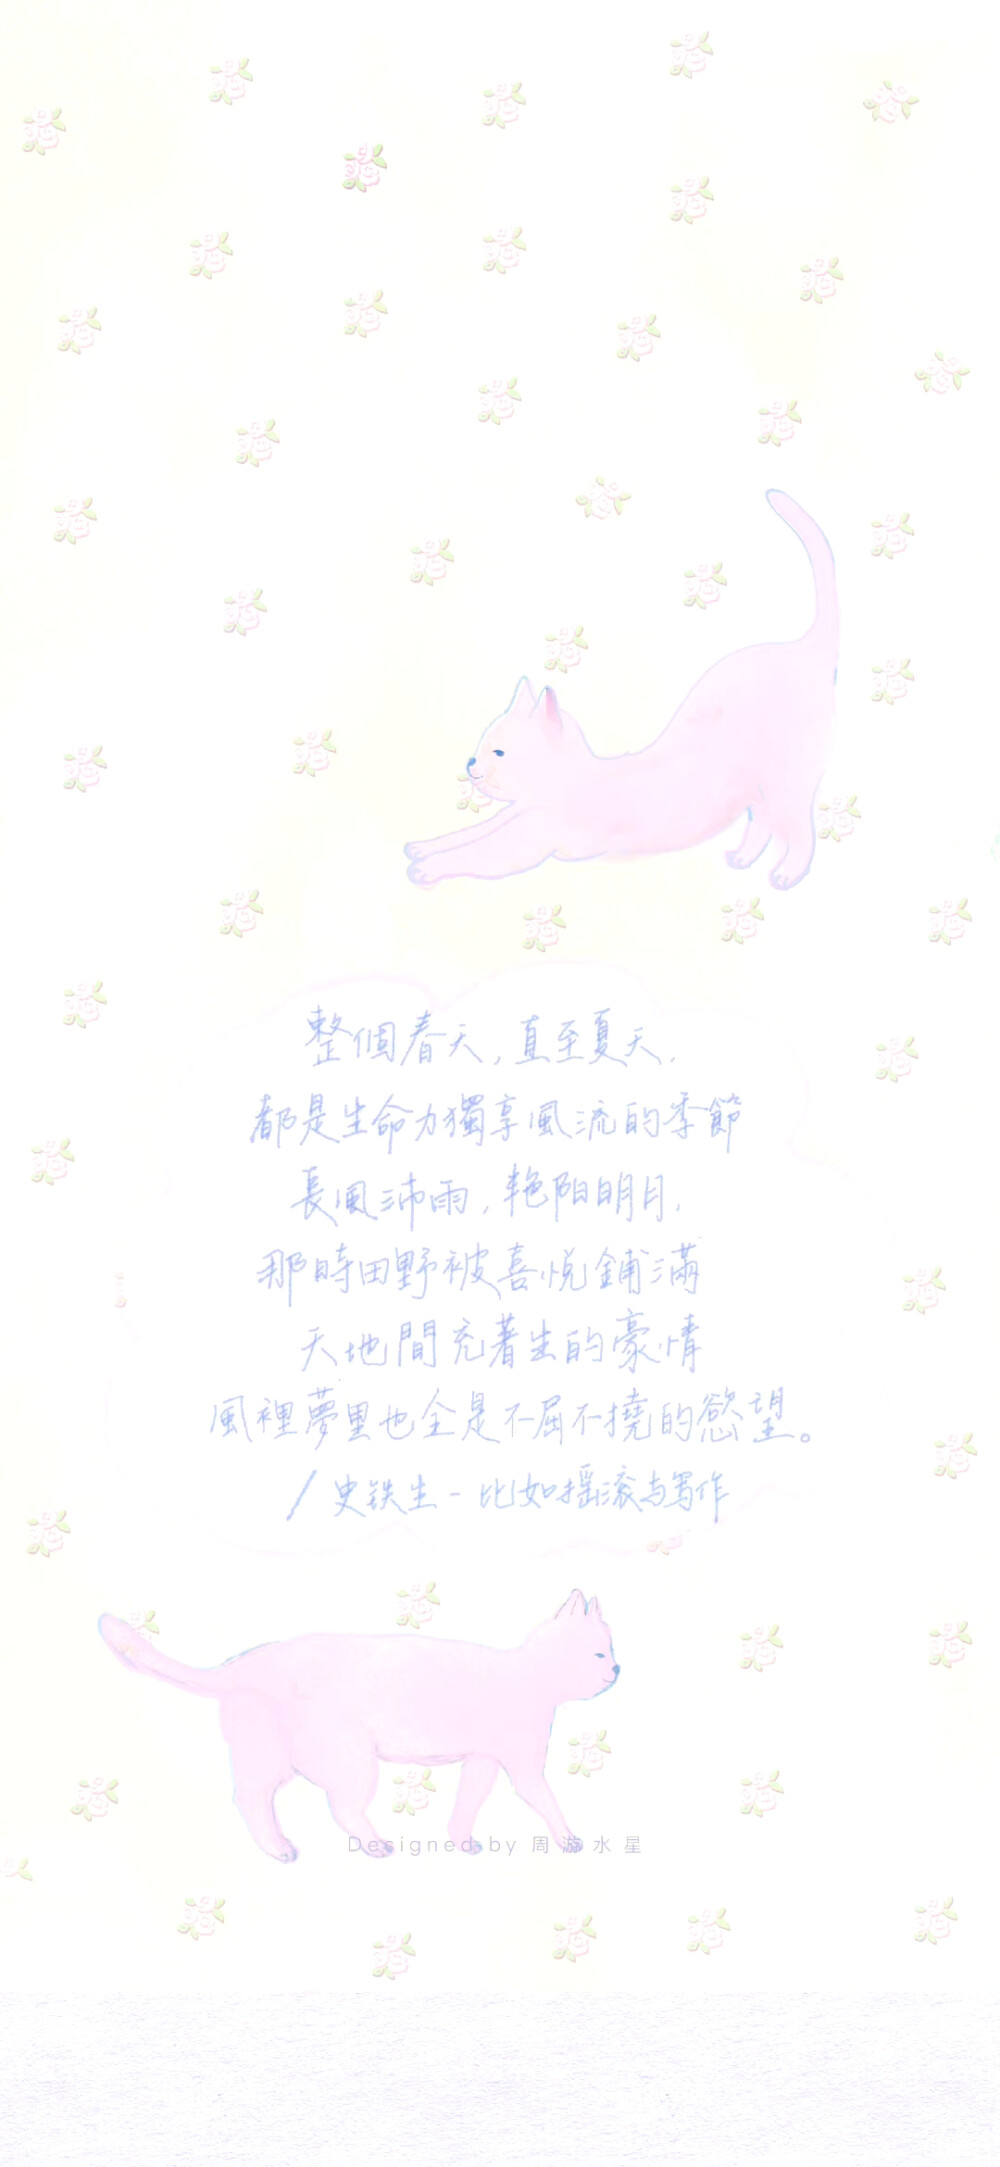 整個春天，直至夏天，
都是生命力獨享風流的季節
長風沛雨，艳阳明月，
那時田野被喜悅鋪滿
天地間充著生的豪情
風裡夢里也全是不屈不撓的慾望。
/史铁生-比如摇滚与写作
Designed by 周游水星